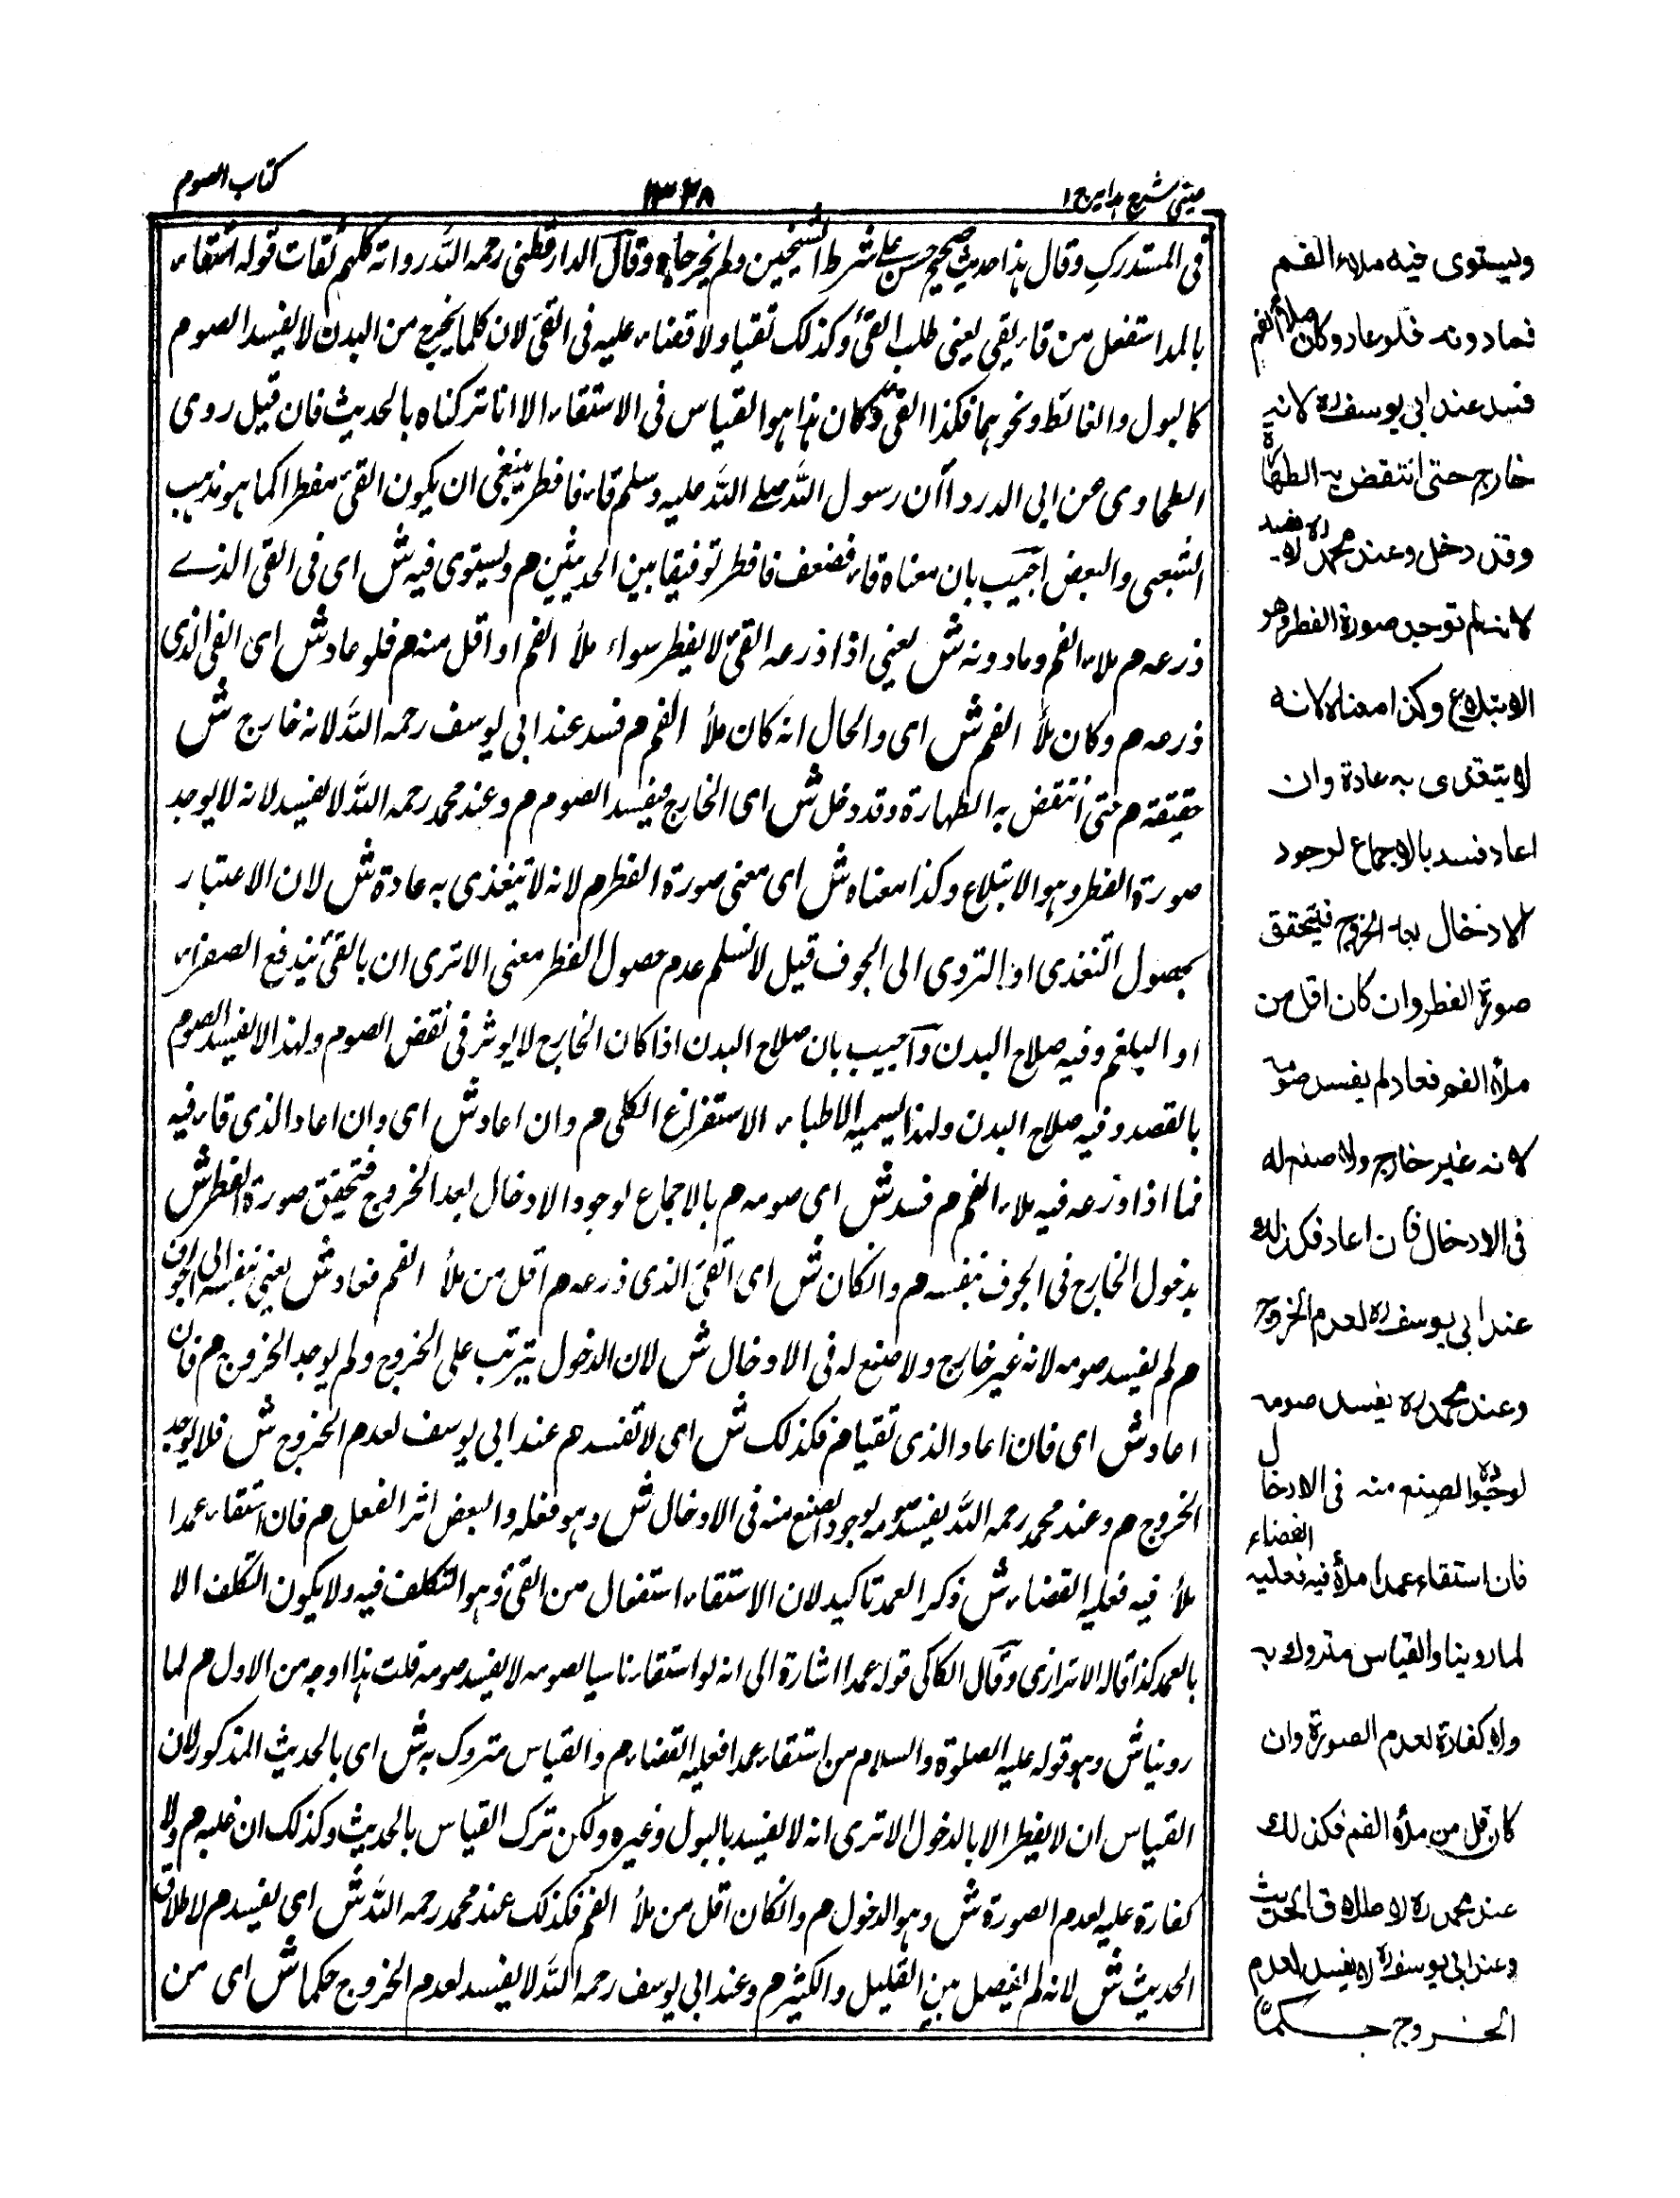 عینی شرح ہدایہ ج ۱
۱۳۳۸
کتاب الصوم
فی المستدرک وقال ہذا حدیث صحیح حسن علی شرط الشیخین ولم یخرجاہ وقال الدارقطنی رحمہ اللہ رواتہ کلہم ثقات قولہ استقاء
بالمد استفعل من قاء یقی یعنی طلب القئ وکذلک تقیا ولا قضاء علیہ فی القئ لان کلما یخرج من البدن لا یفسد الصوم
کالبول والغائط ونحوہما فکذا القئ وکان ہذا ہو القیاس فی الاستقاء الا انا ترکناہ بالحدیث فان قیل روی
الطحاوی عن ابی الدرداآن رسول اللہ صلے اللہ علیہ وسلم قاء فافطر ینبغی ان یکون القئ مفطرا کما ہو مذہب
الشعبی والبعض اجیب بان معناہ قاء فضعف فافطر توفیقا بین الحدیثین م ویستوی فیہ ش ای فی القئ الذے
ذرعہ م ملاء الفم وما دونہ ش یعنی اذا ذرعہ القئ لا یفطر سواء ملأ الفم او اقل منہ م فلو عاد ش ای القئ الذی
ذرعہ م وکان ملأ الفم ش ای والحال انہ کان ملأ الفم م فسد عند ابی یوسف رحمہ اللہ لانہ خارج ش
حقیقۃ م حتی انتقض بہ الطہارۃ وقد دخل ش ای الخارج فیفسد الصوم م وعند محمد رحمہ اللہ لا یفسد لانہ لا یوجد
صورۃ الفطر وہو الابتلاع وکذا معناہ ش ای معنی صورۃ الفطر م لانہ لا یتغذی بہ عادۃ ش لان الاعتبار
بحصول التغذی او التروی الی الجوف قیل لا نسلم عدم حصول الفطر معنی الا تری ان بالقئ یندفع الصفراء
او البلغم وفیہ صلاح البدن وآجیب بان صلاح البدن اذا کان الخارج لا یوثر فی نقض الصوم ولہذا لا یفسد الصوم
بالفصد وفیہ صلاح البدن ولہذا یسمیہ الاطباء الاستفراغ الکلی م وان اعاد ش ای وان اعاد الذی قاء فیہ
فما اذا ذرعہ فیہ ملاء الفم م فسد ش ای صومہ م بالاجماع لوجود الادخال بعد الخروج فتحقق صورۃ الفطر ش
بدخول الخارج فی الجوف بنفسہ م وانکان ش ای القئ الذی ذرعہ م اقل من ملأ الفم فعاد ش یعنی بنفسہ الی الجوف
م لم یفسد صومہ لانہ غیر خارج ولا صنع لہ فی الادخال ش لان الدخول یترتب علی الخروج ولم یوجد الخروج م فان
اعاد ش ای فان اعاد الذی تقیا م فکذلک ش ای لا تفسد م عند ابی یوسف لعدم الخروج ش فلا یوجد
الخروج م وعند محمد رحمہ اللہ یفسد صومہ لوجود الصنع منہ فی الادخال ش وہو فعلہ والبعض اثر الفعل م فان استقاء عمدا
ملأ فیہ فعلیہ القضاء ش ذکر العمد تاکید لان الاستقاء استفعال من القئ وہو التکلف فیہ ولا یکون التکلف الا
بالعمد کذا قالہ الاترازی وقال الکاکی قولہ عمدا اشارۃ الی انہ لو استقاء ناسیا لصومہ لا یفسد صومہ قلت ہذا اوجہ من الاول م لما
روینا ش وہو قولہ علیہ الصلوۃ والسلام من استقاء عمدا فعلیہ القضاء م والقیاس متروک بہ ش ای بالحدیث المذکور لان
القیاس ان لا یفطر الا بالدخول الا تری انہ لا یفسد بالبول وغیرہ ولکن ترک القیاس بالحدیث وکذلک ان غلبہ م ولا
کفارۃ علیہ لعدم الصورۃ ش وہو الدخول م وانکان اقل من ملأ الفم فکذلک عند محمد رحمہ اللہ ش ای یفسد م لاطلاق
الحدیث ش لانہ لم یفصل بین القلیل والکثیر م وعند ابی یوسف رحمہ اللہ لا یفسد لعدم الخروج حکما ش ای من
ویستوی فیہ ملاء الفم
فما دونہ فلو عاد وکان ملأ الفم
فسد عند ابی یوسف رہ لانہ
خارج حتی انتقض بہ الطہارۃ
وقد دخل وعند محمد رہ لا یفسد
لانہ لم توجد صورۃ الفطر وھو
الابتلاع وکذا معناہ لانہ
لا یتغذی بہ عادۃ وان
اعاد فسد بالاجماع لوجود
الادخال بعد الخروج فیتحقق
صورۃ الفطر وان کان اقل من
ملأ الفم فعاد لم یفسد صومہ
لانہ غیر خارج ولا صنع لہ
فی الادخال فان اعاد فکذلک
عند ابی یوسف رہ لعدم الخروج
وعند محمد رہ یفسد صومہ
لوجود الصنع منہ فی الادخال
فان استقاء عمدا ملأ فیہ فعلیہ القضاء
لما روینا والقیاس متروک بہ
ولا کفارۃ لعدم الصورۃ وان
کان اقل من ملأ الفم فکذلک
عند محمد رہ لاطلاق الحدیث
وعند ابی یوسف رہ لا یفسد لعدم
الخروج حکمًا